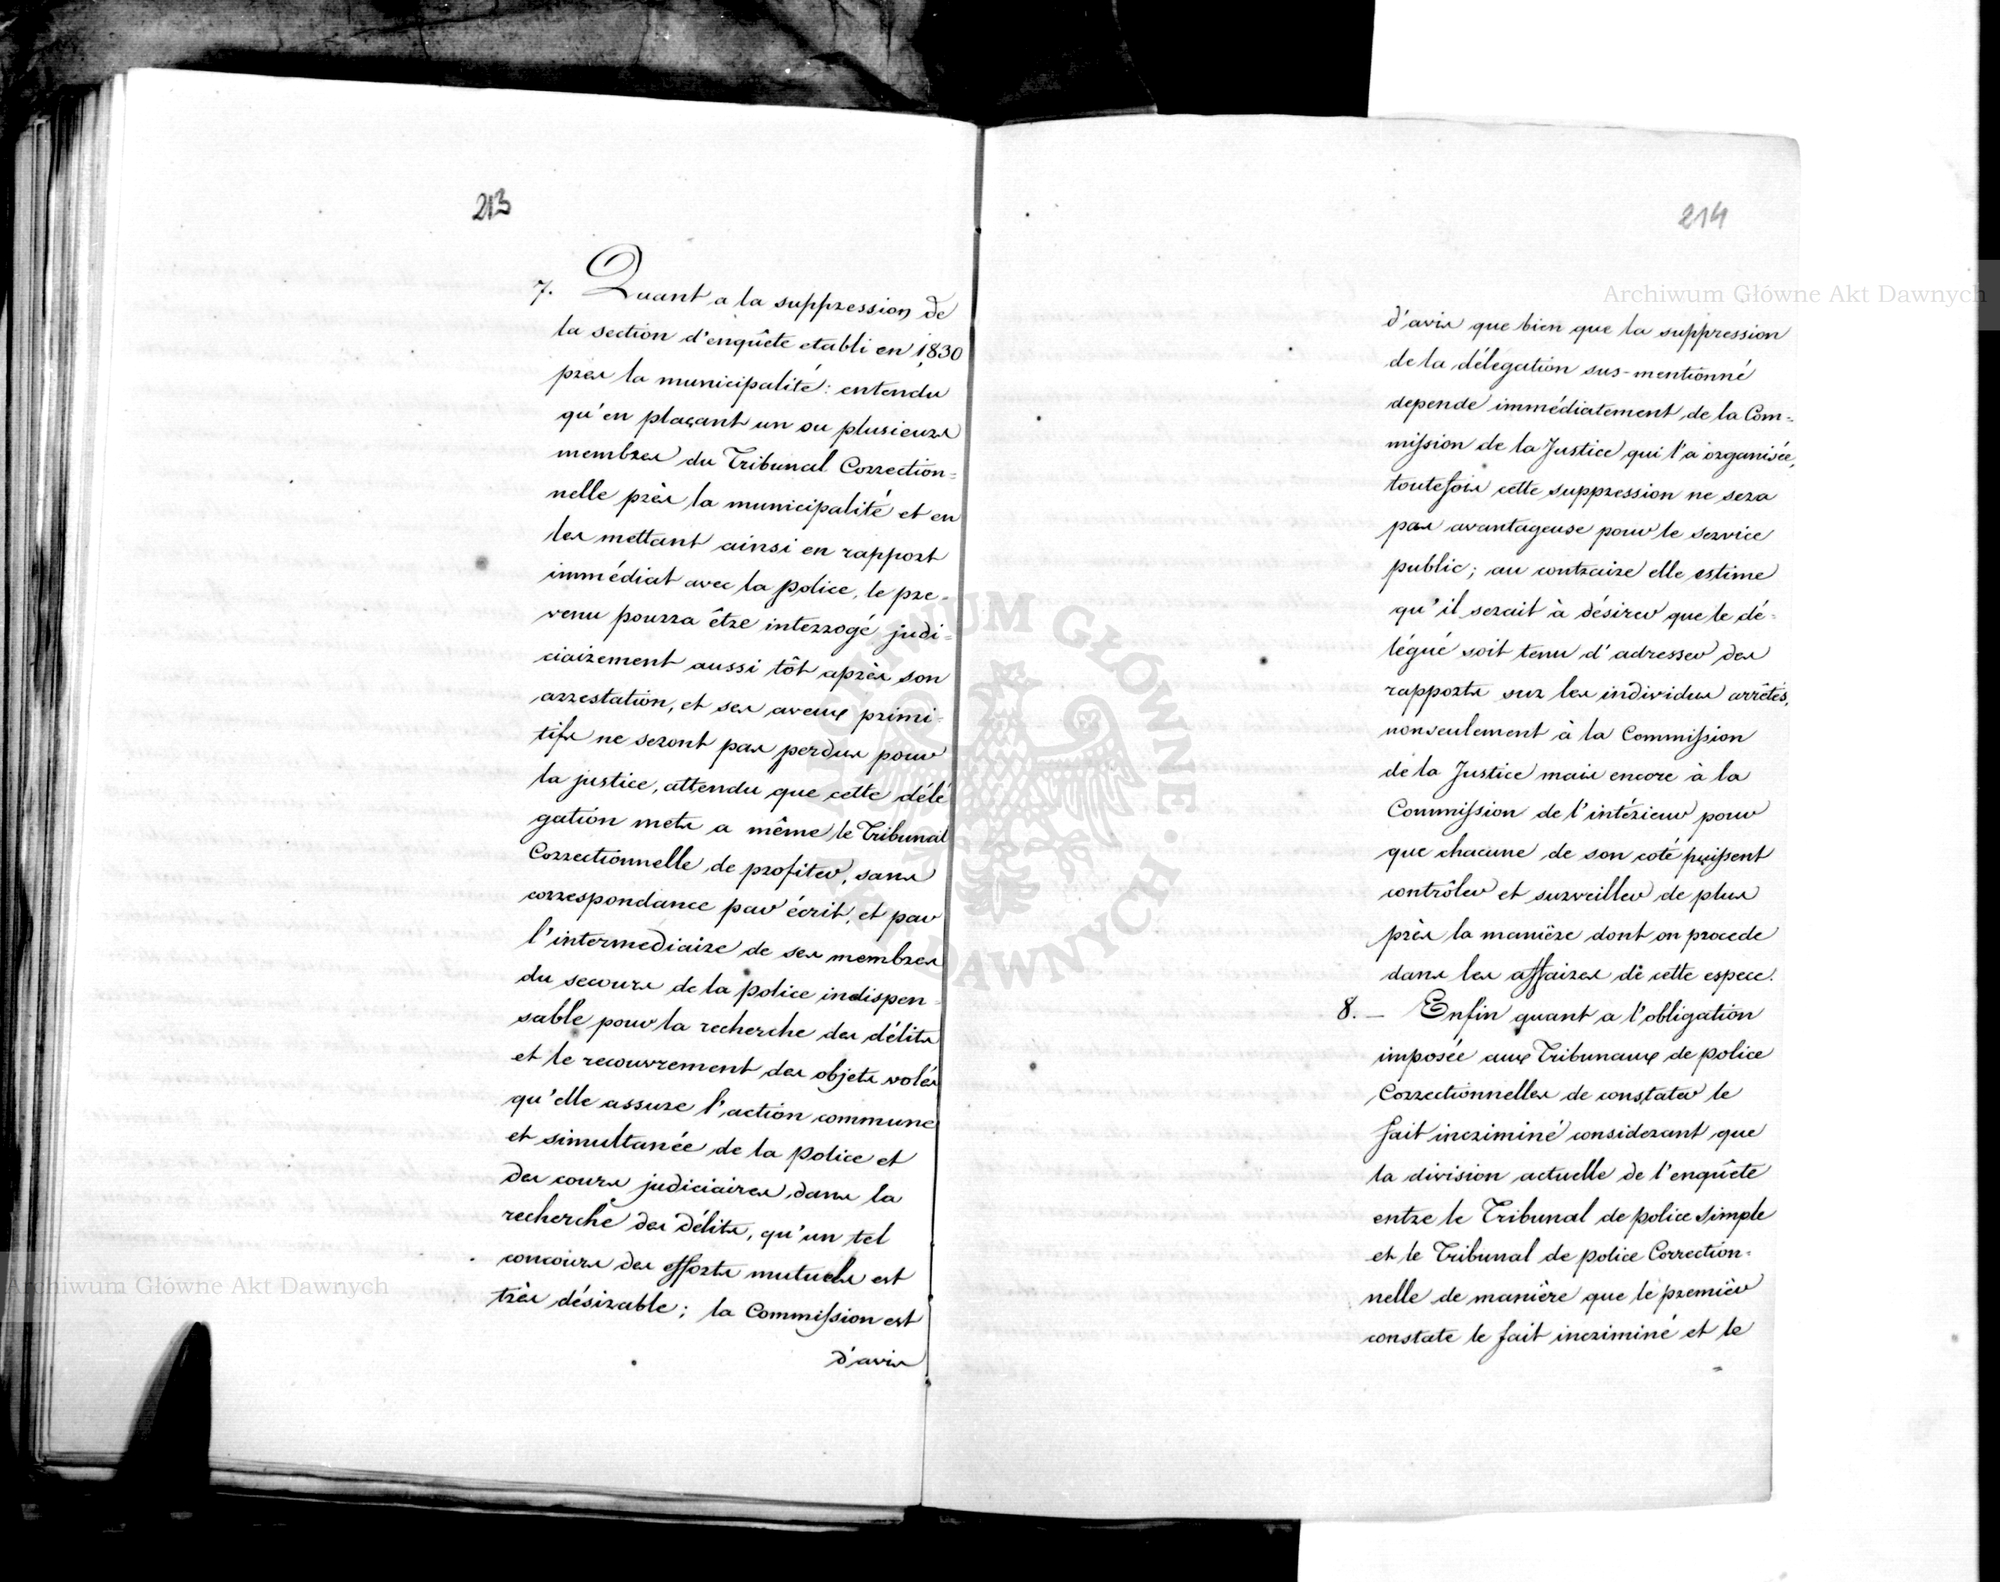 213
7. Quant a la suppression de
la section d'enquête etabli en 1830
près la municipalité: entendu
qu'en plaçant un ou plusieurs
membres du Tribunal Correction=
nelle près la municipalité et en
les mettant ainsi en rapport
immédiat avec la police, le pre=
venu pourra être interrogé judi=
ciairement aussi tôt après son
arrestation, et ses aveux primi=
tifs ne seront pas perdus pour
la justice, attendu que cette délé
gation mets a même le Tribunal
Correctionnelle de profiter, sans
correspondance par écrit, et par
l'intermediaire de ses membres
du secours de la police indispen=
sable pour la recherche des délits
et le recouvrement des objets volés
qu'elle assure l'action commune
et simultanée de la police et
des cours judiciaires dans la
recherche des délits, qu'un tel
concours des efforts mutuels est
très désirable; la Commission est
d'avis
214
d'avis que bien que la suppression
de la délégation sus-mentionné
depende immédiatement de la Com=
mission de la Justice qui l'a organisée,
toutefois cette suppression ne sera
pas avantageuse pour le service
public; au contraire elle estime
qu'il serait à désirer que le dé=
légué soit tenu d'adresser des
rapports sur les individus arrêtés,
nonseulement à la Commission
de la Justice mais encore à la
Commission de l'intérieur pour
que chacune de son coté puissent
contrôler et surveiller de plus
près la manière dont on procede
dans les affaires de cette espece.
8. — Enfin quant a l'obligation
imposée aux Tribunaux de police
Correctionnelles de constater le
fait incriminé considerant que
la division actuelle de l'enquête
entre le Tribunal de police simple
et le Tribunal de police Correction=
nelle de manière que le premier
constate le fait incriminé et le
=
Archiwum Główne Akt Dawnych
Archiwum Główne Akt Dawnych
ARCHIWUM GŁÓWNE AKT DAWNYCH